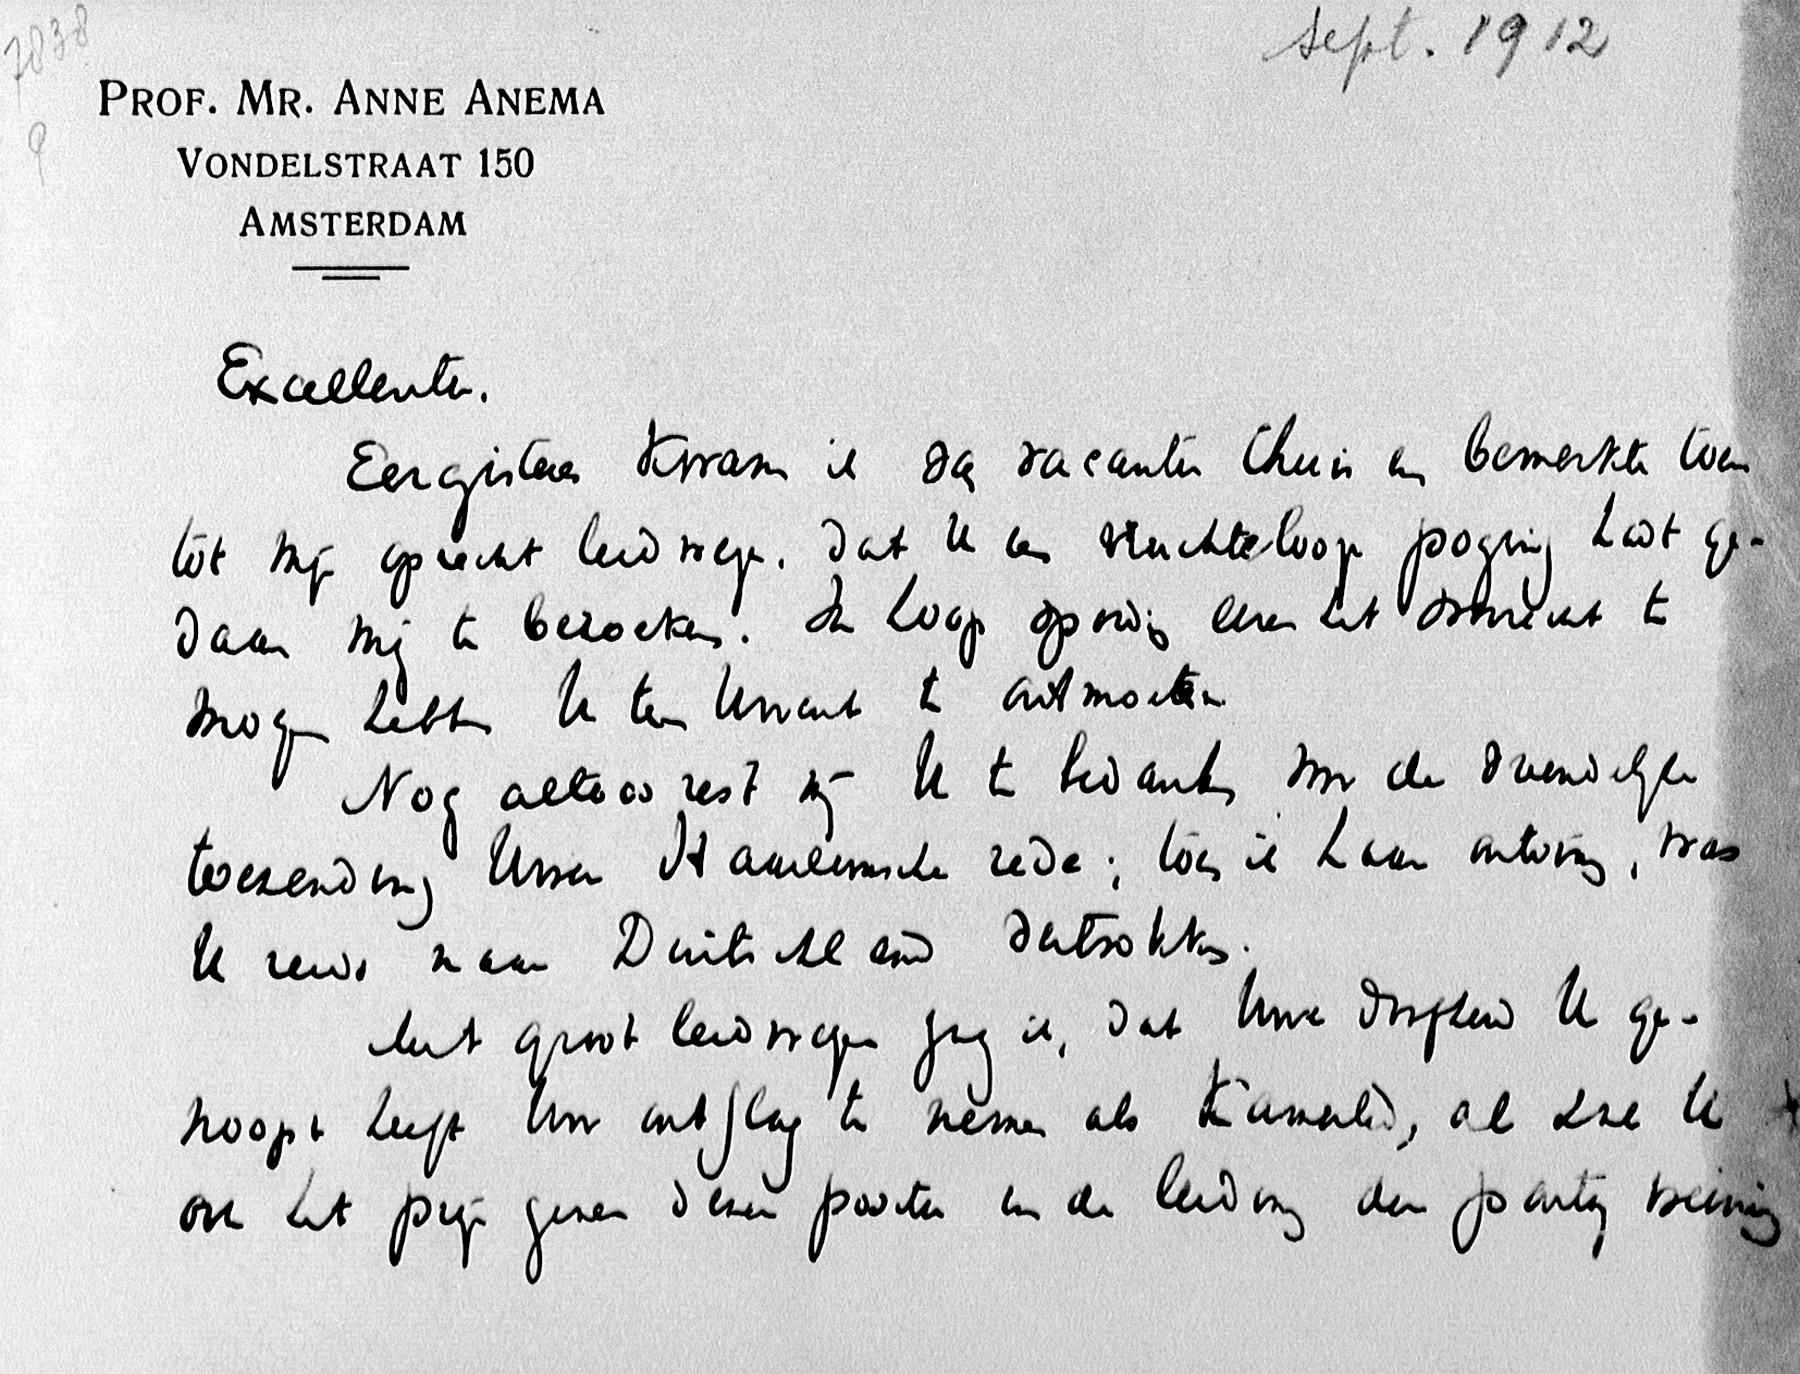 7838
9
sept. 1912
PROF. MR. ANNE ANEMA
VONDELSTRAAT 150
AMSTERDAM
Excellentie.
Eergisteren kwam ik van vacantie thuis en bemerkte toen
tot mijn oprecht leedwezen, dat U een vruchtelooze poging hadt ge-
daan mij te bezoeken. Ik hoop spoedig eens het voorrecht te
mogen hebben U ten Uwent te ontmoeten
Nog altoos rest mij U te bedanken voor de vriendelijke
toezending Uwer Haarlemsche rede; toen ik haar ontving, was
U reeds naar Duitschland vertrokken.
Met groot leedwezen zag ik, dat Uwe doofheid U ge-
noopt heeft Uw ontslag te nemen als Kamerlid, al zal U
ook het prijs geven dezer positie in de leiding der partij weinig